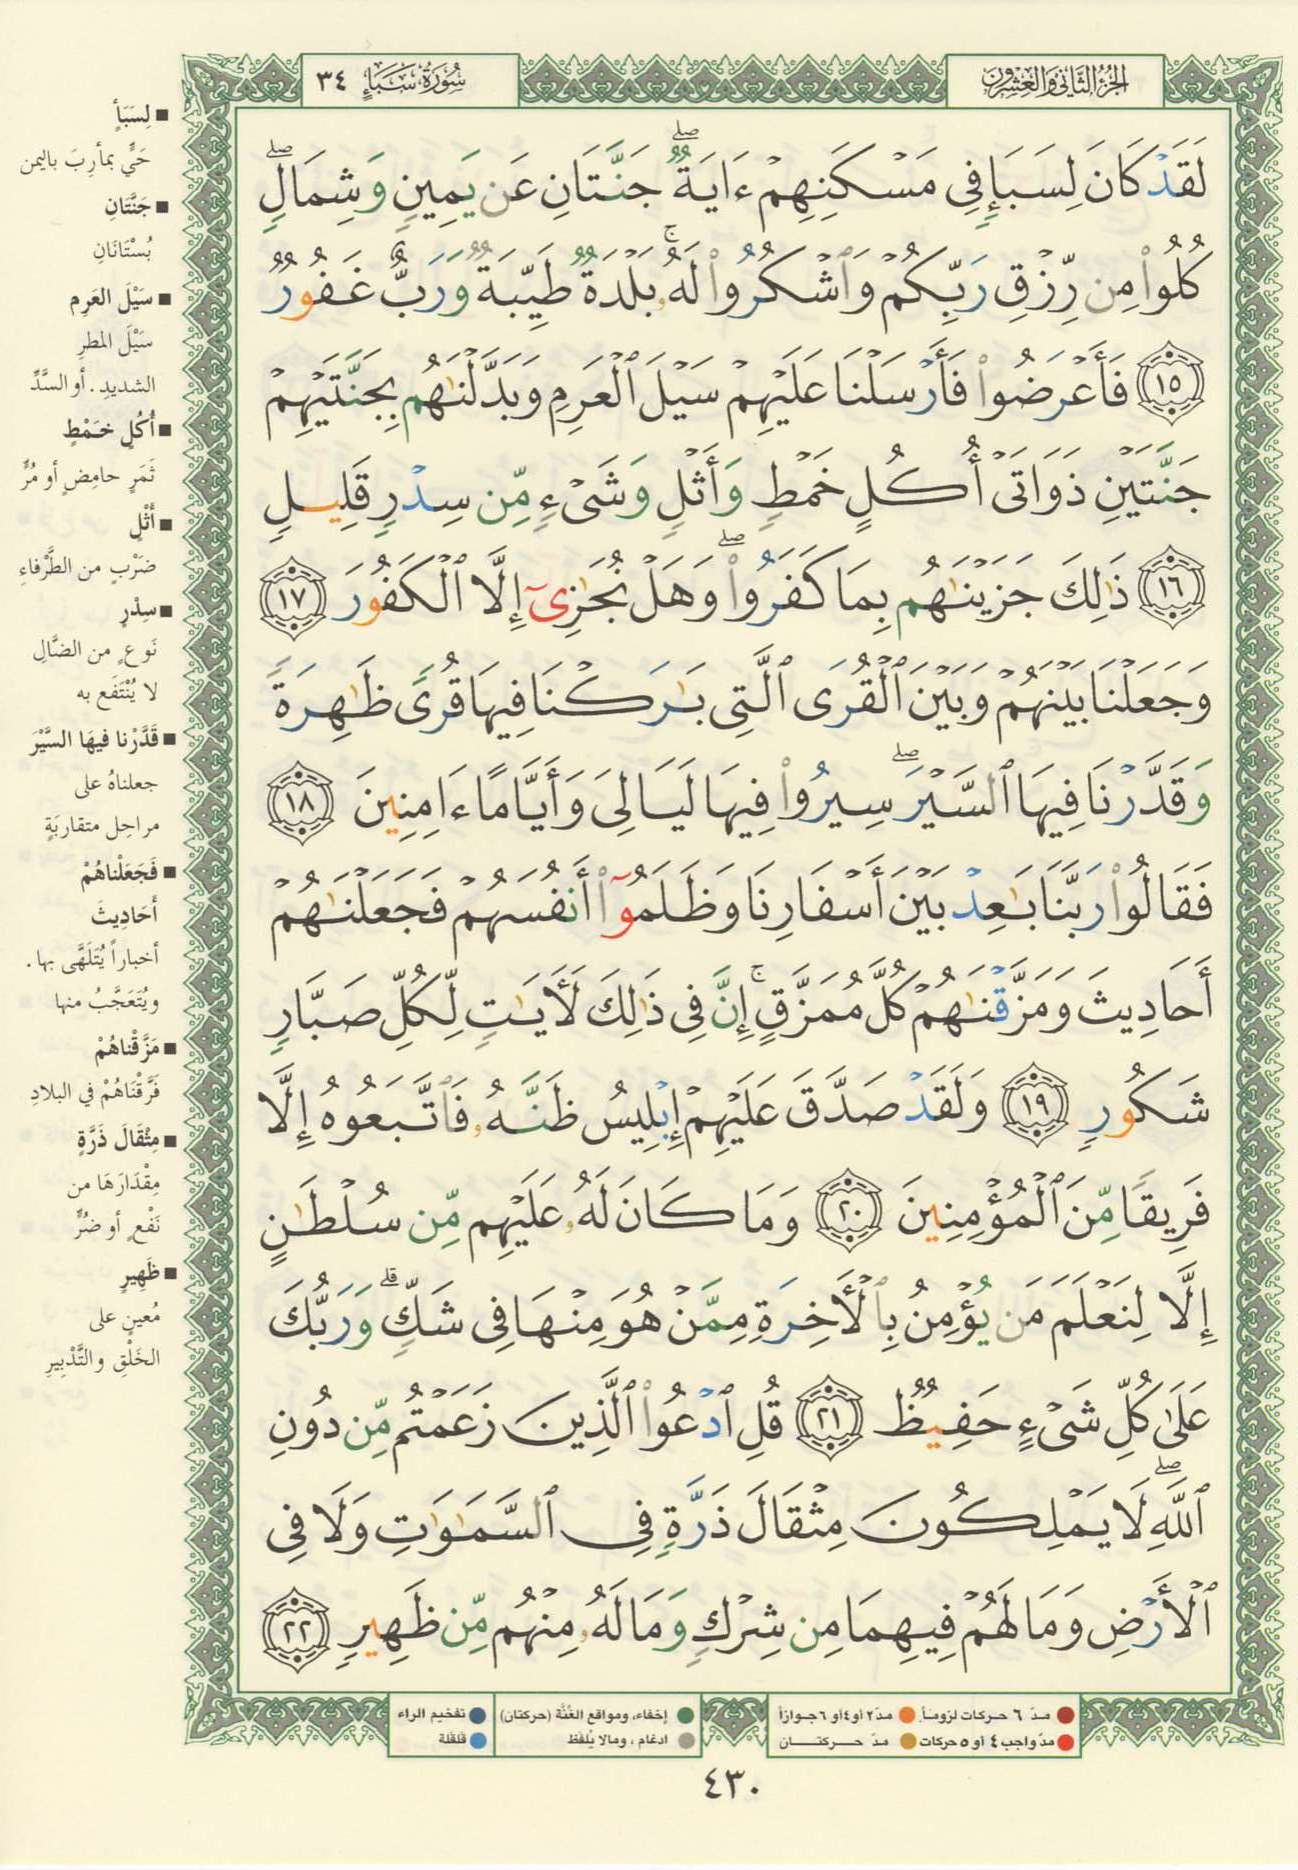 الجزء الثاني والعشرون
سورة سبإ ٣٤
لَقَدْ كَانَ لِسَبَإٍ فِى مَسْكَنِهِمْ ءَايَةٌ ۖ جَنَّتَانِ عَن يَمِينٍ وَشِمَالٍ ۖ
كُلُوا۟ مِن رِّزْقِ رَبِّكُمْ وَٱشْكُرُوا۟ لَهُۥ ۚ بَلْدَةٌ طَيِّبَةٌ وَرَبٌّ غَفُورٌ
١٥ فَأَعْرَضُوا۟ فَأَرْسَلْنَا عَلَيْهِمْ سَيْلَ ٱلْعَرِمِ وَبَدَّلْنَٰهُم بِجَنَّتَيْهِمْ
جَنَّتَيْنِ ذَوَاتَىْ أُكُلٍ خَمْطٍ وَأَثْلٍ وَشَىْءٍ مِّن سِدْرٍ قَلِيلٍ
١٦ ذَٰلِكَ جَزَيْنَٰهُم بِمَا كَفَرُوا۟ ۖ وَهَلْ نُجَٰزِىٓ إِلَّا ٱلْكَفُورَ ١٧
وَجَعَلْنَا بَيْنَهُمْ وَبَيْنَ ٱلْقُرَى ٱلَّتِى بَٰرَكْنَا فِيهَا قُرًى ظَٰهِرَةً
وَقَدَّرْنَا فِيهَا ٱلسَّيْرَ ۖ سِيرُوا۟ فِيهَا لَيَالِىَ وَأَيَّامًا ءَامِنِينَ ١٨
فَقَالُوا۟ رَبَّنَا بَٰعِدْ بَيْنَ أَسْفَارِنَا وَظَلَمُوٓا۟ أَنفُسَهُمْ فَجَعَلْنَٰهُمْ
أَحَادِيثَ وَمَزَّقْنَٰهُمْ كُلَّ مُمَزَّقٍ ۚ إِنَّ فِى ذَٰلِكَ لَءَايَٰتٍ لِّكُلِّ صَبَّارٍ
شَكُورٍ ١٩ وَلَقَدْ صَدَّقَ عَلَيْهِمْ إِبْلِيسُ ظَنَّهُۥ فَٱتَّبَعُوهُ إِلَّا
فَرِيقًا مِّنَ ٱلْمُؤْمِنِينَ ٢٠ وَمَا كَانَ لَهُۥ عَلَيْهِم مِّن سُلْطَٰنٍ
إِلَّا لِنَعْلَمَ مَن يُؤْمِنُ بِٱلْءَاخِرَةِ مِمَّنْ هُوَ مِنْهَا فِى شَكٍّ ۗ وَرَبُّكَ
عَلَىٰ كُلِّ شَىْءٍ حَفِيظٌ ٢١ قُلِ ٱدْعُوا۟ ٱلَّذِينَ زَعَمْتُم مِّن دُونِ
ٱللَّهِ ۖ لَا يَمْلِكُونَ مِثْقَالَ ذَرَّةٍ فِى ٱلسَّمَٰوَٰتِ وَلَا فِى
ٱلْأَرْضِ وَمَا لَهُمْ فِيهِمَا مِن شِرْكٍ وَمَا لَهُۥ مِنْهُم مِّن ظَهِيرٍ ٢٢
■ لِسَبَأٍ
حَيٍّ بمأرِبَ باليمن
■ جَنَّتَانِ
بُسْتَانَانِ
■ سَيْلَ العَرِم
سَيْلَ المطرِ
الشديدِ. أو السَّدِّ
■ أُكُلٍ خَمْطٍ
ثَمَرٍ حامِضٍ أو مُرٍّ
■ أَثْلٍ
ضَرْبٍ من الطَّرْفاءِ
■ سِدْرٍ
نَوعٍ من الضَّالِ
لا يُنْتَفَع به
■ قَدَّرْنا فيهَا السَّيْرَ
جعلناهُ على
مراحِل متقاربَةٍ
■ فَجَعَلْناهُمْ
أَحَادِيثَ
أخباراً يُتَلَهَّى بها.
ويُتَعَجَّبُ منها
■ مَزَّقْناهُمْ
فَرَّقْنَاهُمْ في البلادِ
■ مِثْقَالَ ذَرَّةٍ
مِقْدَارَهَا من
نَفْعٍ أو ضُرٍّ
■ ظَهِيرٍ
مُعينٍ على
الخَلْقِ والتَّدْبِيرِ
مدّ ٦ حركات لزوماً ● مدّ ٢ أو ٤ أو ٦ جوازاً
مدّ واجب ٤ أو ٥ حركات ● مدّ حركتان
إخفاء، ومواقع الغُنَّة (حركتان) ● تفخيم الراء
ادغام ، وما لا يُلفَظ ● قلقلة
٤٣٠